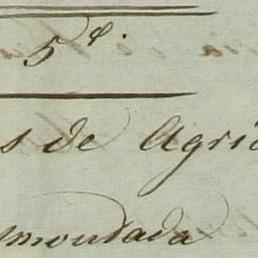 5ª.
s de Agric
smontada